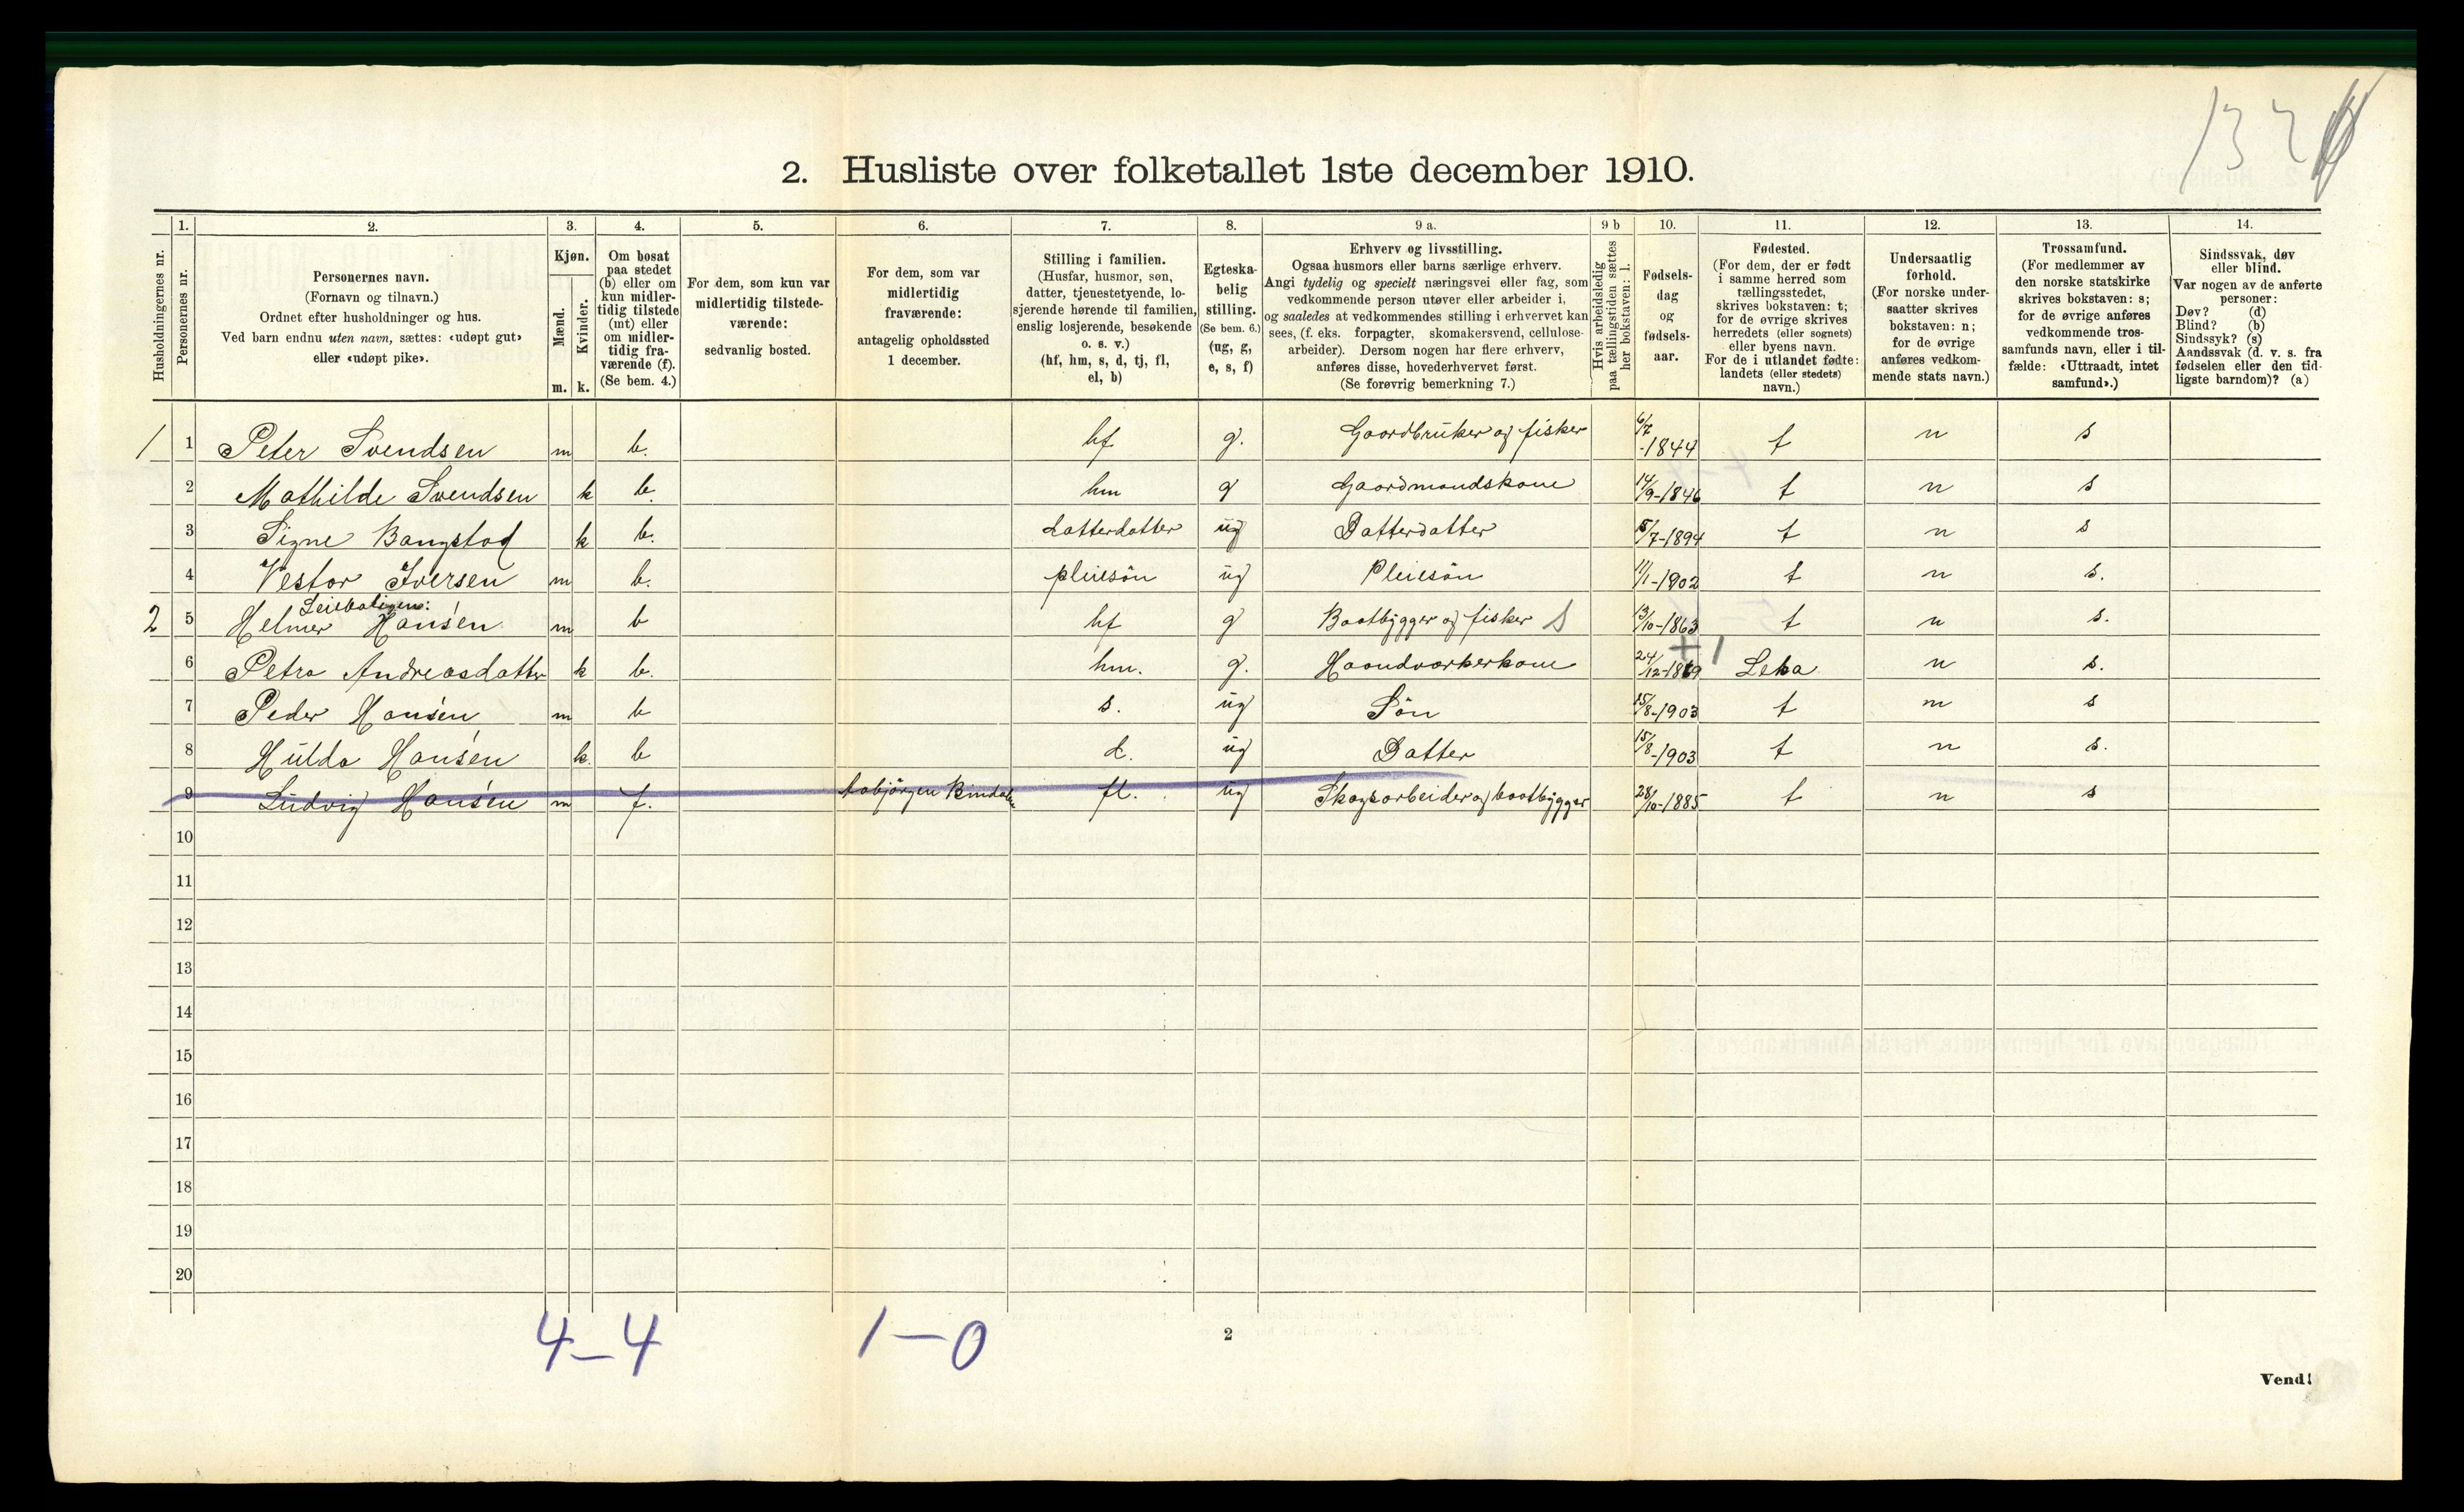 132
2. Husliste over folketallet 1ste december 1910.
Husholdningernes nr.
1. Personernes nr.
2. Personernes navn.
(Fornavn og tilnavn.)
Ordnet efter husholdninger og hus.
Ved barn endnu uten navn, sættes: «udøpt gut»
eller «udøpt pike».
3. Kjøn.
Mænd. m.
Kvinder. k.
4. Om bosat
paa stedet
(b) eller om
kun midler-
tidig tilstede
(mt) eller
om midler-
tidig fra-
værende (f).
(Se bem. 4.)
5. For dem, som kun var
midlertidig tilstede-
værende:
sedvanlig bosted.
6. For dem, som var
midlertidig
fraværende:
antagelig opholdssted
1 december.
7. Stilling i familien.
(Husfar, husmor, søn,
datter, tjenestetyende, lo-
sjerende hørende til familien,
enslig losjerende, besøkende
o. s. v.)
(hf, hm, s, d, tj, fl,
el, b)
8. Egteska-
belig
stilling.
(Se bem. 6.)
(ug, g,
e, s, f)
9 a. Erhverv og livsstilling.
Ogsaa husmors eller barns særlige erhverv.
Angi tydelig og specielt næringsvei eller fag, som
vedkommende person utøver eller arbeider i,
og saaledes at vedkommendes stilling i erhvervet kan
sees, (f. eks. forpagter, skomakersvend, cellulose-
arbeider). Dersom nogen har flere erhverv,
anføres disse, hovederhvervet først.
(Se forøvrig bemerkning 7.)
9 b Hvis arbeidsledig
paa tællingstiden sættes
her bokstaven: l.
10. Fødsels-
dag
og
fødsels-
aar.
11. Fødested.
(For dem, der er født
i samme herred som
tællingsstedet,
skrives bokstaven: t;
for de øvrige skrives
herredets (eller sognets)
eller byens navn.
For de i utlandet fødte:
landets (eller stedets)
navn.)
12. Undersaatlig
forhold.
(For norske under-
saatter skrives
bokstaven: n;
for de øvrige
anføres vedkom-
mende stats navn.)
13. Trossamfund.
(For medlemmer av
den norske statskirke
skrives bokstaven: s;
for de øvrige anføres
vedkommende tros-
samfunds navn, eller i til-
fælde: «Uttraadt, intet
samfund».)
14. Sindssvak, døv
eller blind.
Var nogen av de anførte
personer:
Døv? (d)
Blind? (b)
Sindssyk? (s)
Aandssvak (d. v. s. fra
fødselen eller den tid-
ligste barndom)? (a)
1 1 Peter Svendsen m b. hf g. Gaardbruker og fisker 6/7-1844 t n s
2 Mathilde Svendsen k b. hm g Gaardmandskone 14/9-1846 t n s
3 Signe Bangstad k b. datterdatter ug Datterdatter 5/7-1894 t n s
4 Vestor Iversen m b. pleiesön ug Pleiesön 11/1-1902 t n s.
Leieboligen:
2 5 Helmer Hansen m b hf g Baatbygger og fisker S 13/10-1863 t n s.
6 Petra Andreasdatter k b. hm. g. Haandværkerkone 24/12-1869 Leka n s.
7 Peder Hansen m b s. ug Sön 15/8-1903 t n s
8 Hulda Hansen k. b d. ug Datter 15/8-1903 t n s.
9 Ludvig Hansen m f. Bindalen fl. ug Skogsarbeider og baatbygger 28/10-1885 t n s
10
11
12
13
14
15
16
17
18
19
20
4-4 1-0
2
Vend!